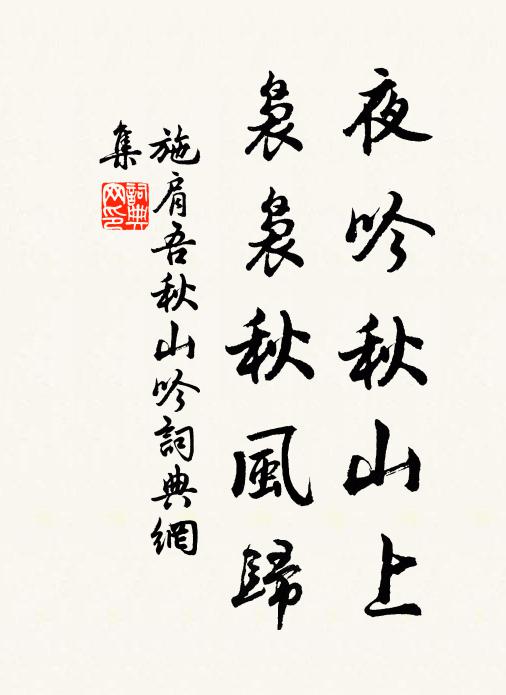 夜吟秋山上
袅袅秋風歸
施肩吾秋山吟詞典網
集
詞典
网印